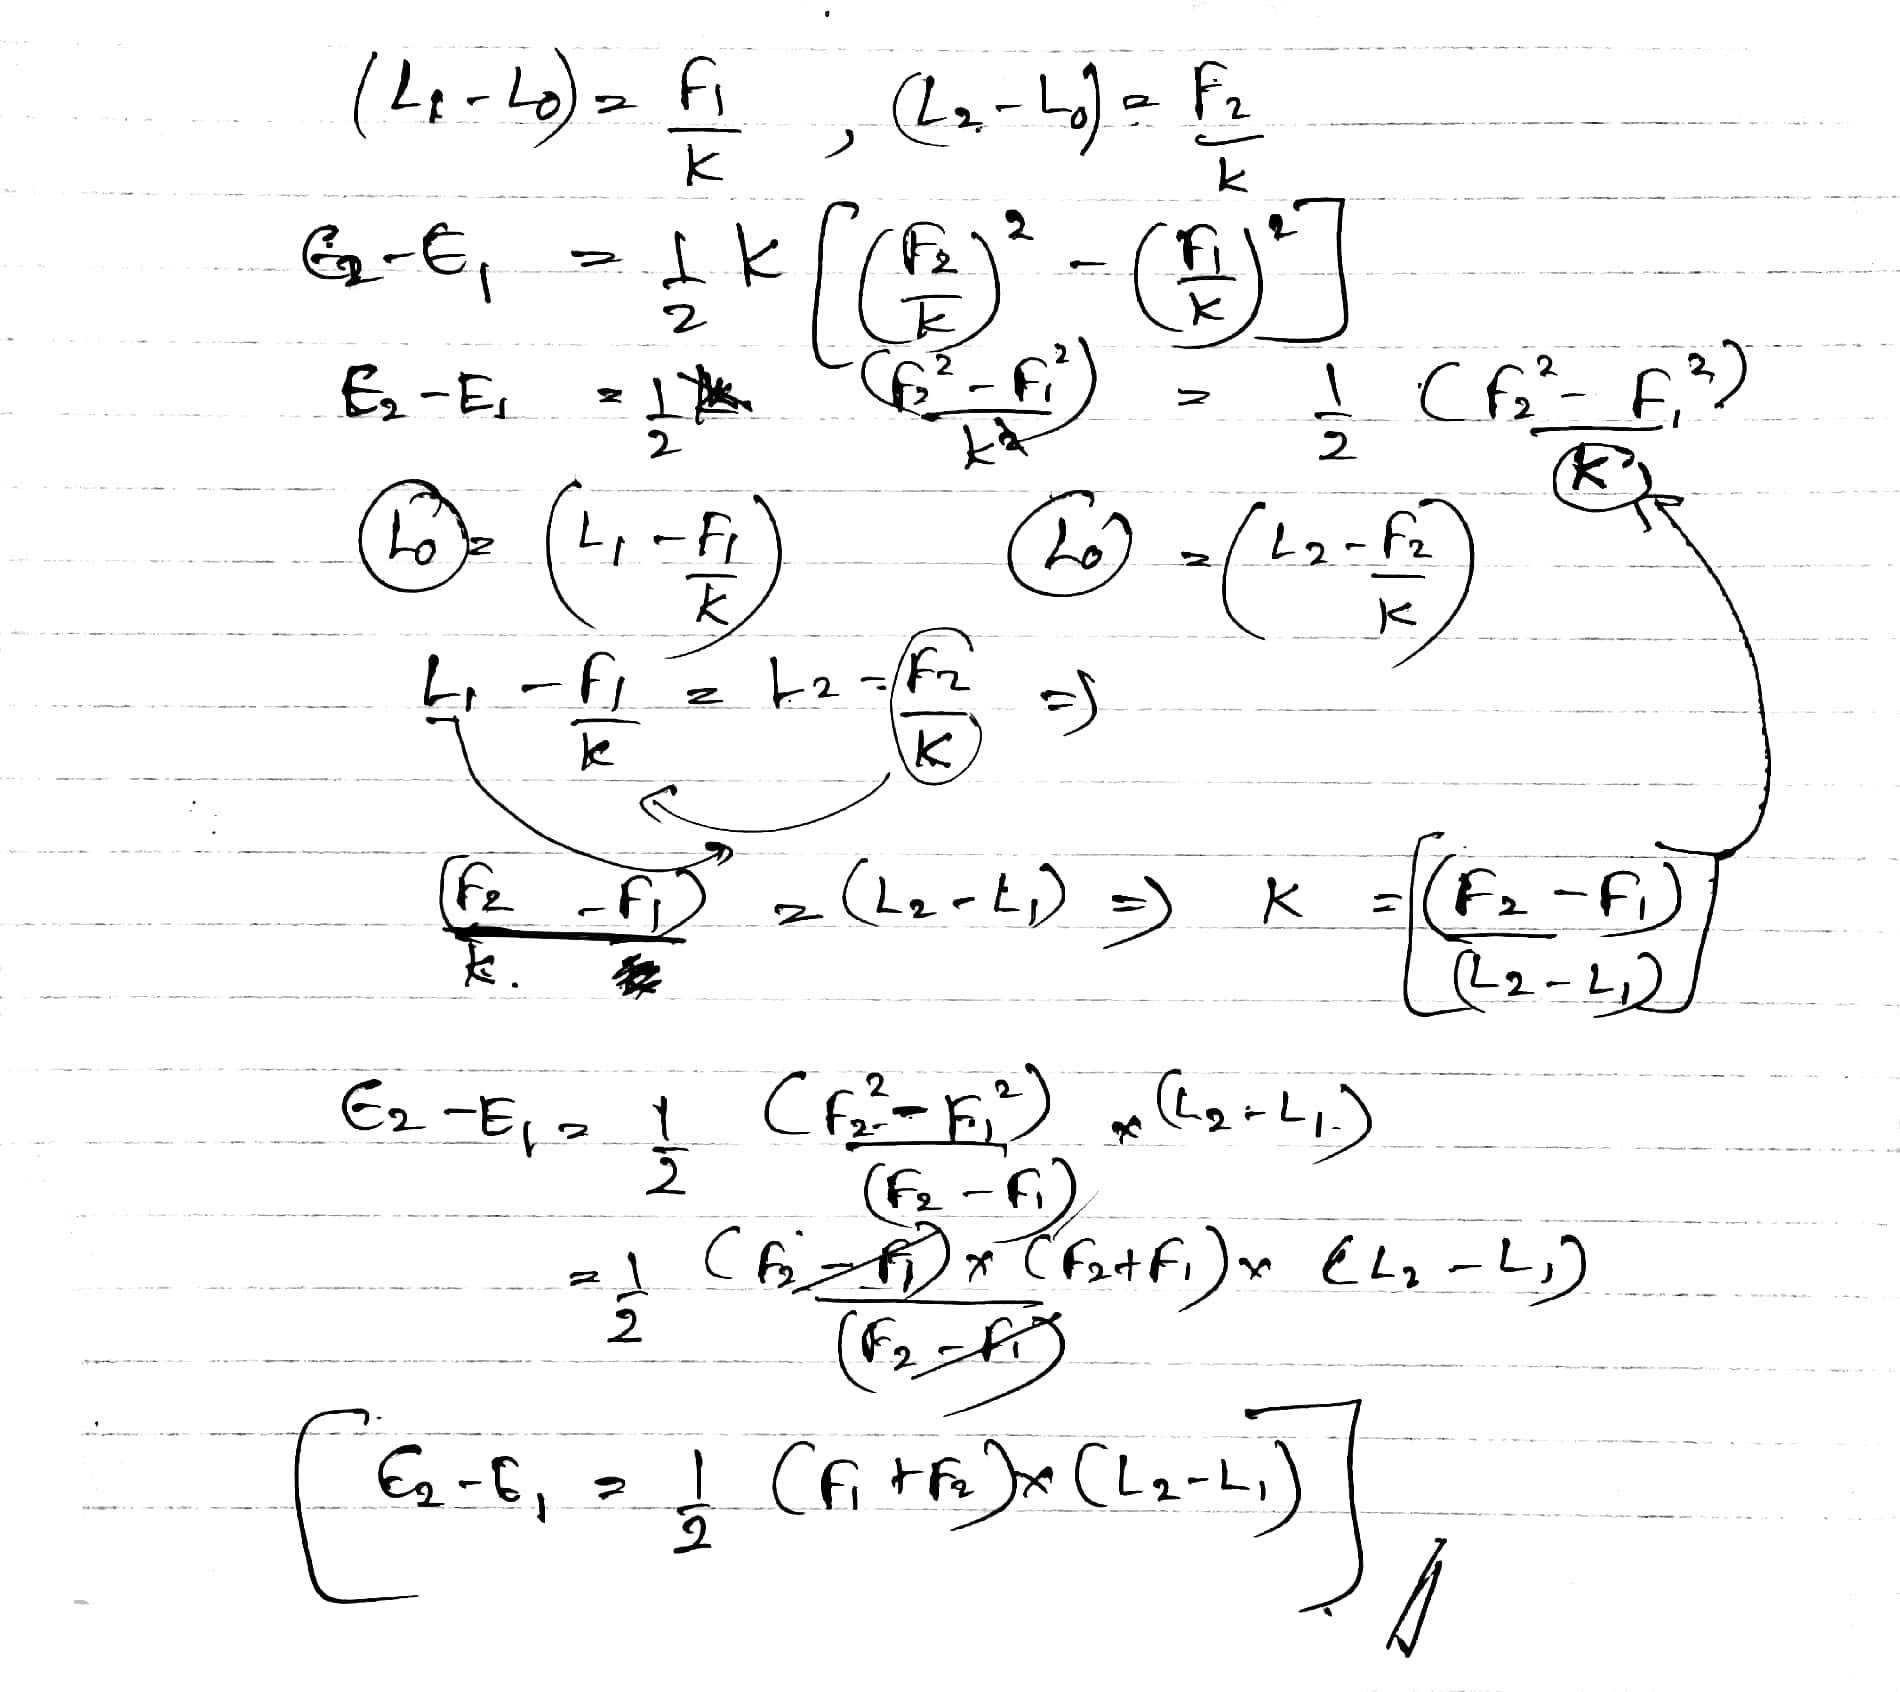 (L₁ - L₀) = F₁/K , (L₂ - L₀) = F₂/K
E₂ - E₁ = 1/2 K [(F₂/K)² - (F₁/K)²]
E₂ - E₁ = 1/2 (F₂² - F₁²)/K² = 1/2 (F₂² - F₁²)/K
L₀ = (L₁ - F₁/K) L₀ = (L₂ - F₂/K)
L₁ - F₁/K = L₂ - F₂/K ⇒
(F₂ - F₁)/K. = (L₂ - L₁) ⇒ K = [(F₂ - F₁)/(L₂ - L₁)]
E₂ - E₁ = 1/2 (F₂² - F₁²)/(F₂ - F₁) × (L₂ - L₁)
= 1/2 (F₂ - F₁) × (F₂ + F₁)/(F₂ - F₁) × (L₂ - L₁)
[E₂ - E₁ = 1/2 (F₁ + F₂) × (L₂ - L₁)]